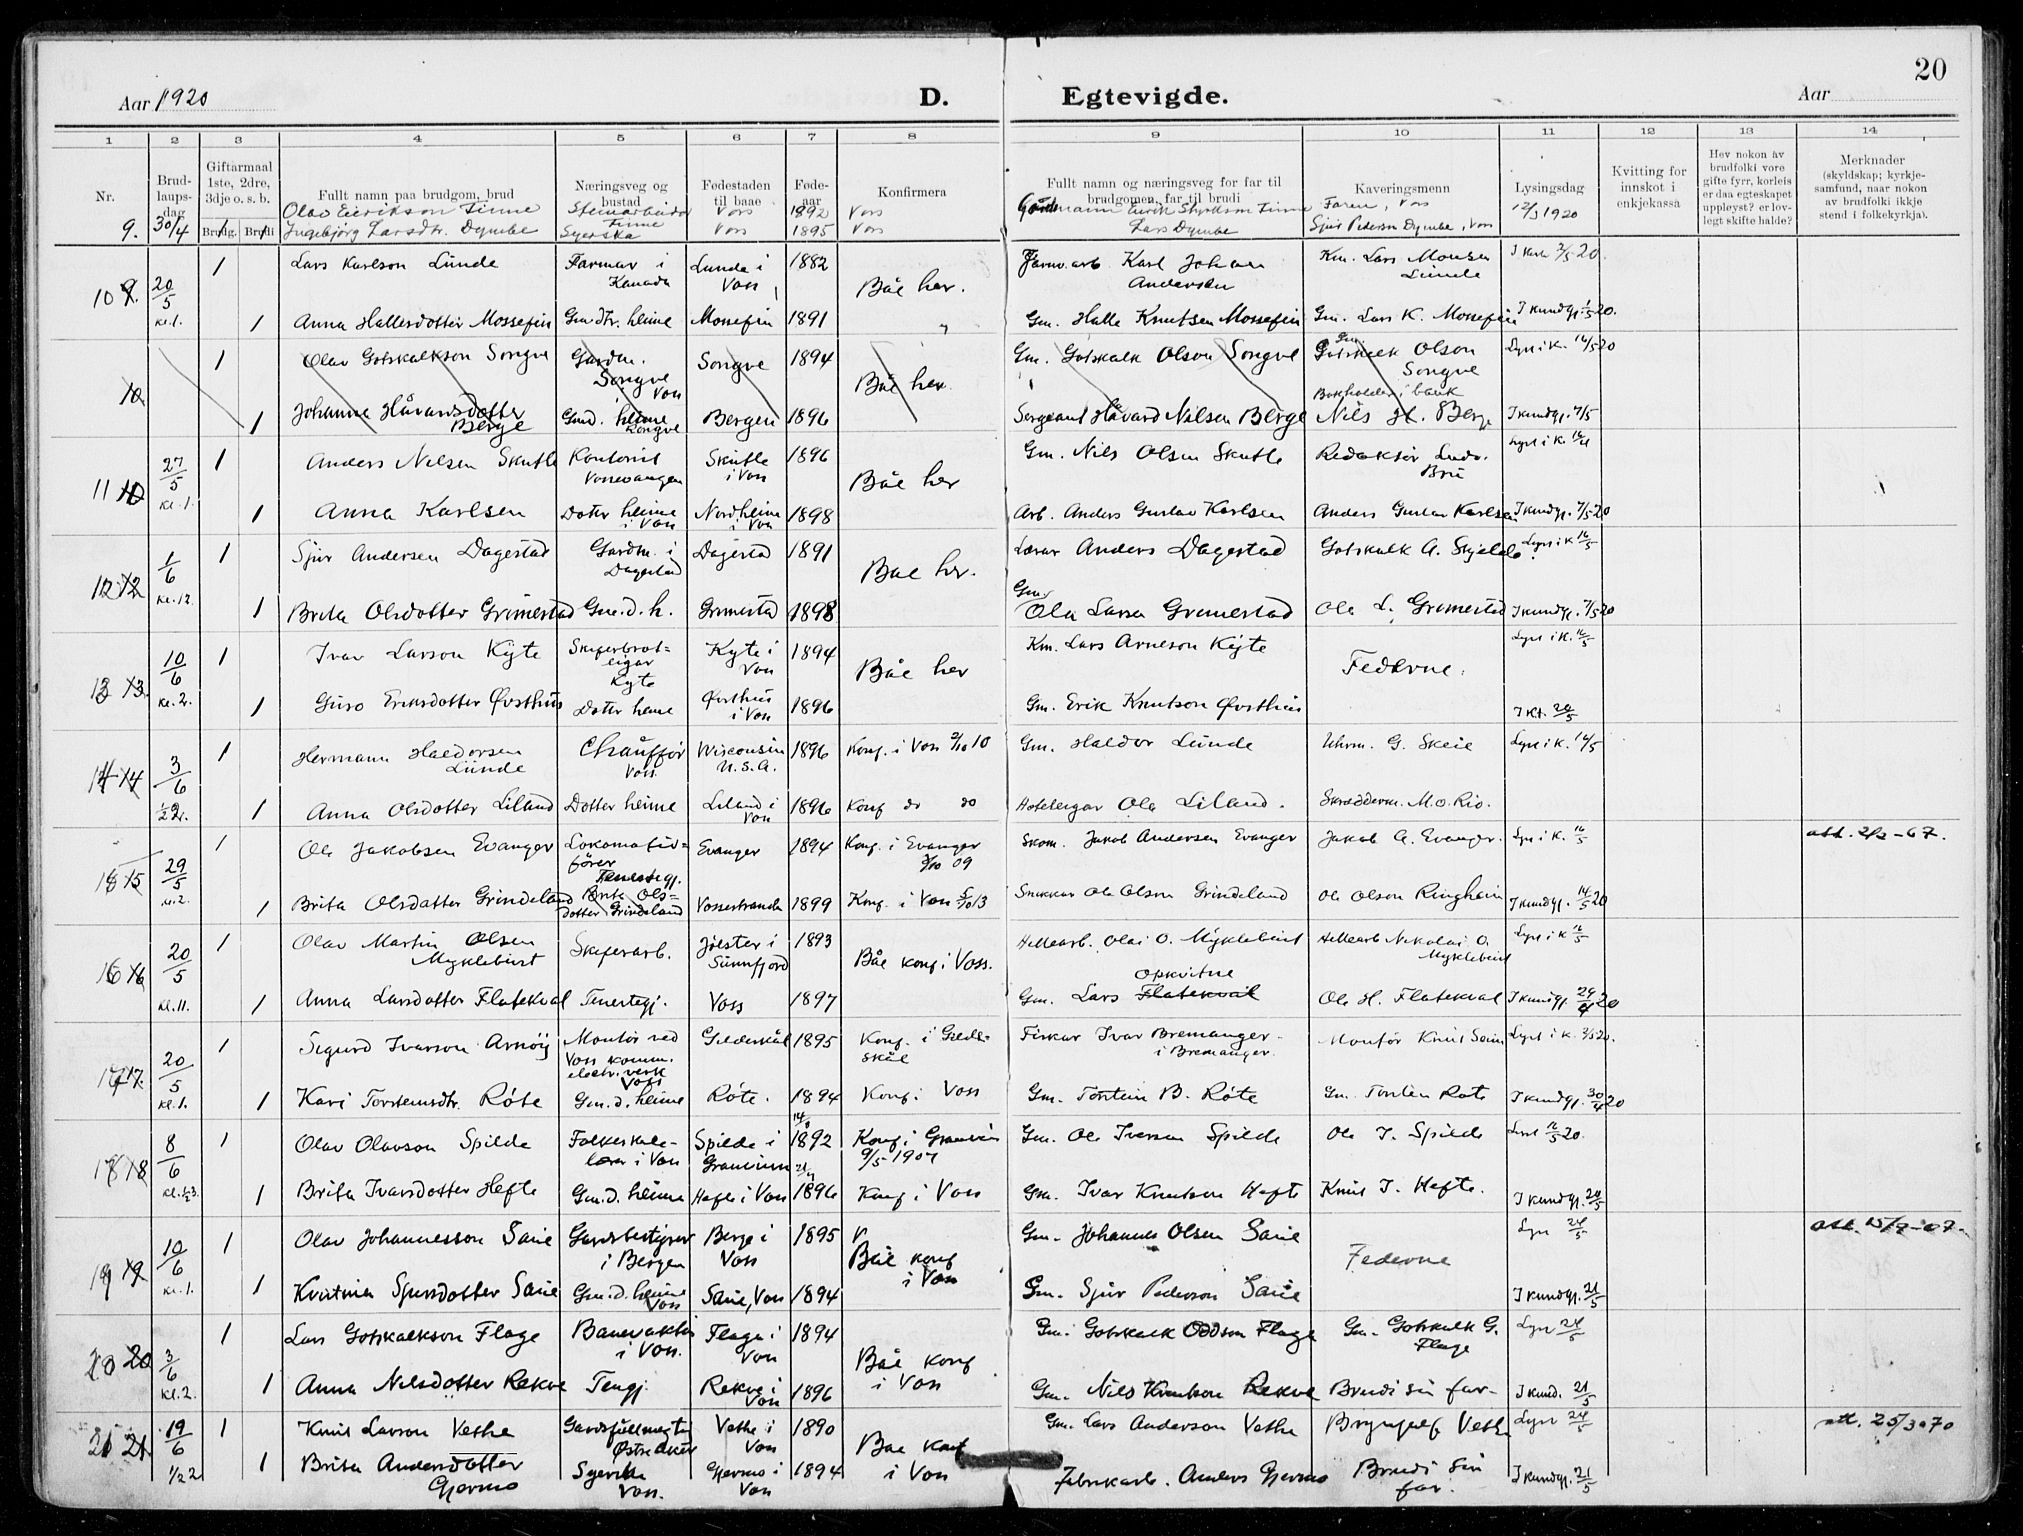 20
Aar 1920
D.
Egtevigde.
Aar
1 2 3 4 5 6 7 8 9 10 11 12 13 14
Nr.
Brudlaups-dag
Giftarmaal 1ste, 2dre, 3dje o. s. b.
Brudg. Brudi
Fullt namn paa brudgom, brud
Næringsveg og bustad
Fødestaden til baae
Føde-aar
Konfirmera
Fullt namn og næringsveg for far til brudgomen, far til brudi
Kaveringsmenn
Lysingsdag
Kvitting for innskot i enkjekassa
Hev nokon av brudfolki vore gifte fyrr, korleis er daa egteskapet uppløyst? er lov-legt skifte halde?
Merknader (skyldskap; kyrkje-samfund, naar nokon av brudfolki ikkje stend i folkekyrkja).
9. 30/4 Olav Eirikson Finne Steinarbeidar Finne Voss 1892 Voss Gardmann Eirik Styrkson Finne Faren, Voss 12/3 1920
Ingebjørg Larsdtr. Dymbe Syerska Voss 1895 Voss Lars Dymbe Sjur Pederson Dymbe, Voss
10 20/5 kl. 1. 1 Lars Karlson Lunde Farmar i Kanada Lunde i Voss 1882 Båe her. Jarnv.arb. Karl Johan Andersen Km. Lars Monsen Lunde 2/5 20.
1 Anna Hallesdotter Mossefin Gm.dtr. heime Mossefin 1891 " Gm. Halle Knutsen Mossefin Gm. Lars K. Mossefin I kundgj. 1/5 20.
10 1 Olav Gotskalkson Songve Gardm. Songve Voss Songve 1894 Båe her Gm. Gotskalk Olson Songve Gm. Gotskalk Olson Songve Lyst i K. 16/5 20
1 Johanna Håvardsdotter Berge Gmd. heime Songve Bergen 1896 Sergeant Håvard Nilsen Berge Bokholder i bank Nils H. Berge I kundgj. 7/5
11 27/5 kl. 1. 1 Anders Nilsen Skutle Kontorist Vossevangen Skutle i Voss 1896 Båe her Gm. Nils Olsen Skutle Redaktør Ludv. Bru Lyst i K.
1 Anna Karlsen Doter heime i Voss Nordheim i Voss 1898 Arb. Anders Gustav Karlsen Anders Gustav Karlsen I kundgj. 7/5 20
12 1/6 kl. 12. 1 Sjur Andersen Dagestad Gardm. i Dagestad Dagestad 1891 Båe her. Lærar Anders Dagestad Gotskalk A. Skjelde Lyst i K 16/5
1 Brita Olsdotter Grimestad Gm.d.h. Grimestad 1898 Gm. Ola Larsa Grimestad Ole L. Grimestad I kundgj. 7/5 20
13 10/6 kl. 2. 1 Ivar Larson Kyte Skiferbrot-eigar Kyte Kyte i Voss 1894 Båe her Km. Lars Arneson Kyte Federne. Lyst i K. 16/5
1 Guro Eriksdotter Øvsthus Doter heime Øvsthus i Voss 1896 Gm. Erik Knutson Øvsthus I Kt. 20/5
14 3/6 1/2 2. 1 Hermann Haldorsen Lunde Chauffør Voss Wisconsin U.S.A. 1896 Konf. i Voss 2/10 10 Gm. Haldor Lunde Uhrm. G. Skeie Lyst i K. 16/5
1 Anna Olsdotter Liland Dotter heime Liland i Voss 1896 Konf do do Hoteleigar Ola Liland. Skræddarm. M. O. Rio.
15 29/5 kl. 2. 1 Ole Jakobsen Evanger Lokomotiv-fører Evanger 1894 Konf. i Evanger 3/10 09 Skom. Jakob Andersen Evanger Jakob A. Evanger. Lys i K. 16/5 att. 2/2-67.
1 Brita Olsdatter Grindeland Tenestegj. Brita Ols-dotter Grindeland Vossestrand 1899 Konf. i Voss 5/10 13 Snekkar Ole Olson Grindeland Ole Olson Ringheim I kundgj. 14/5 20
16 20/5 kl. 11. 1 Olav Martin Olsen Myklebust Skiferarb. Jølster i Sunnfjord 1893 Båe konf i Voss. Hellearb. Olai O. Myklebust Hellearb Nikolai O. Myklebust Lyst i K 16/5
1 Anna Larsdotter Flatekval Tenestegj. Voss 1897 Gm. Lars Flatekval Opkvitne Ole H. Flatekval I kundgj. 29/4 20
17 20/5 kl. 1. 1 Sigurd Ivarson Arnøy Montør ved Voss komm. electr. verk Voss Gildeskål 1895 Konf. i Gilde-skål Fiskar Ivar Bremanger i Bremanger. Montør Knut Seim Lyst i K. 2/5 20.
1 Kari Torsteinsdtr. Røte Gm.d. heime Røte. 1894 Konf. i Voss Gm. Torstein B. Røte Gm. Torstein Røte I kundgj. 30/4 20
18 8/6 kl. 1/2 3. 1 Olav Olavson Spilde Folkeskule-lærar i Voss Spilde i Granvin 1892 Konf i Granvin 9/5 1907 Gm. Ole Iverson Spilde Ole I. Spilde Lyst 16/5 20.
1 Brita Ivarsdotter Hefte Gm.d. heime Hefte i Voss 1896 Konf i Voss Gm. Ivar Knutson Hefte Knut I. Hefte. I kundgj. 20/5
19 10/6 kl. 1. 1 Olav Johannesson Saue Gardsbestyrer i Bergen Berge i Voss 1895 Båe konf i Voss Gm. Johannes Olsen Saue Federne Lyst 24/5 att. 15/7-67.
1 Kristina Sjursdotter Saue Gm.d. heime Voss Saue, Voss 1894 Gm. Sjur Pederson Saue I kundgj. 21/5
20 3/6 kl. 2. 1 Lars Gotskalkson Flage Banevaktar i Voss. Flage i Voss 1894 Båe konf i Voss Gm. Gotskalk Oddson Flage Gm. Gotskalk G. Flage Lyst 24/5
1 Anna Nilsdotter Rekve Tengj. Rekve i Voss 1896 Gm. Nils Knutson Rekve Brudi sin far. I kund. 21/5
21 19/6 1/2 2 1 Knut Larson Vethe Gardsfullmegtig Østre Aker Vethe i Voss 1890 Båe konf i Voss Gm. Lars Anderson Vethe Brynjulf Vethe Lyst 24/5 att. 25/3-70
1 Brita Andersdotter Gjermo Syerska Voss. Gjermo i Voss 1894 Fabrikarb. Anders Gjermo Brudi sin far. I kundgj. 21/5